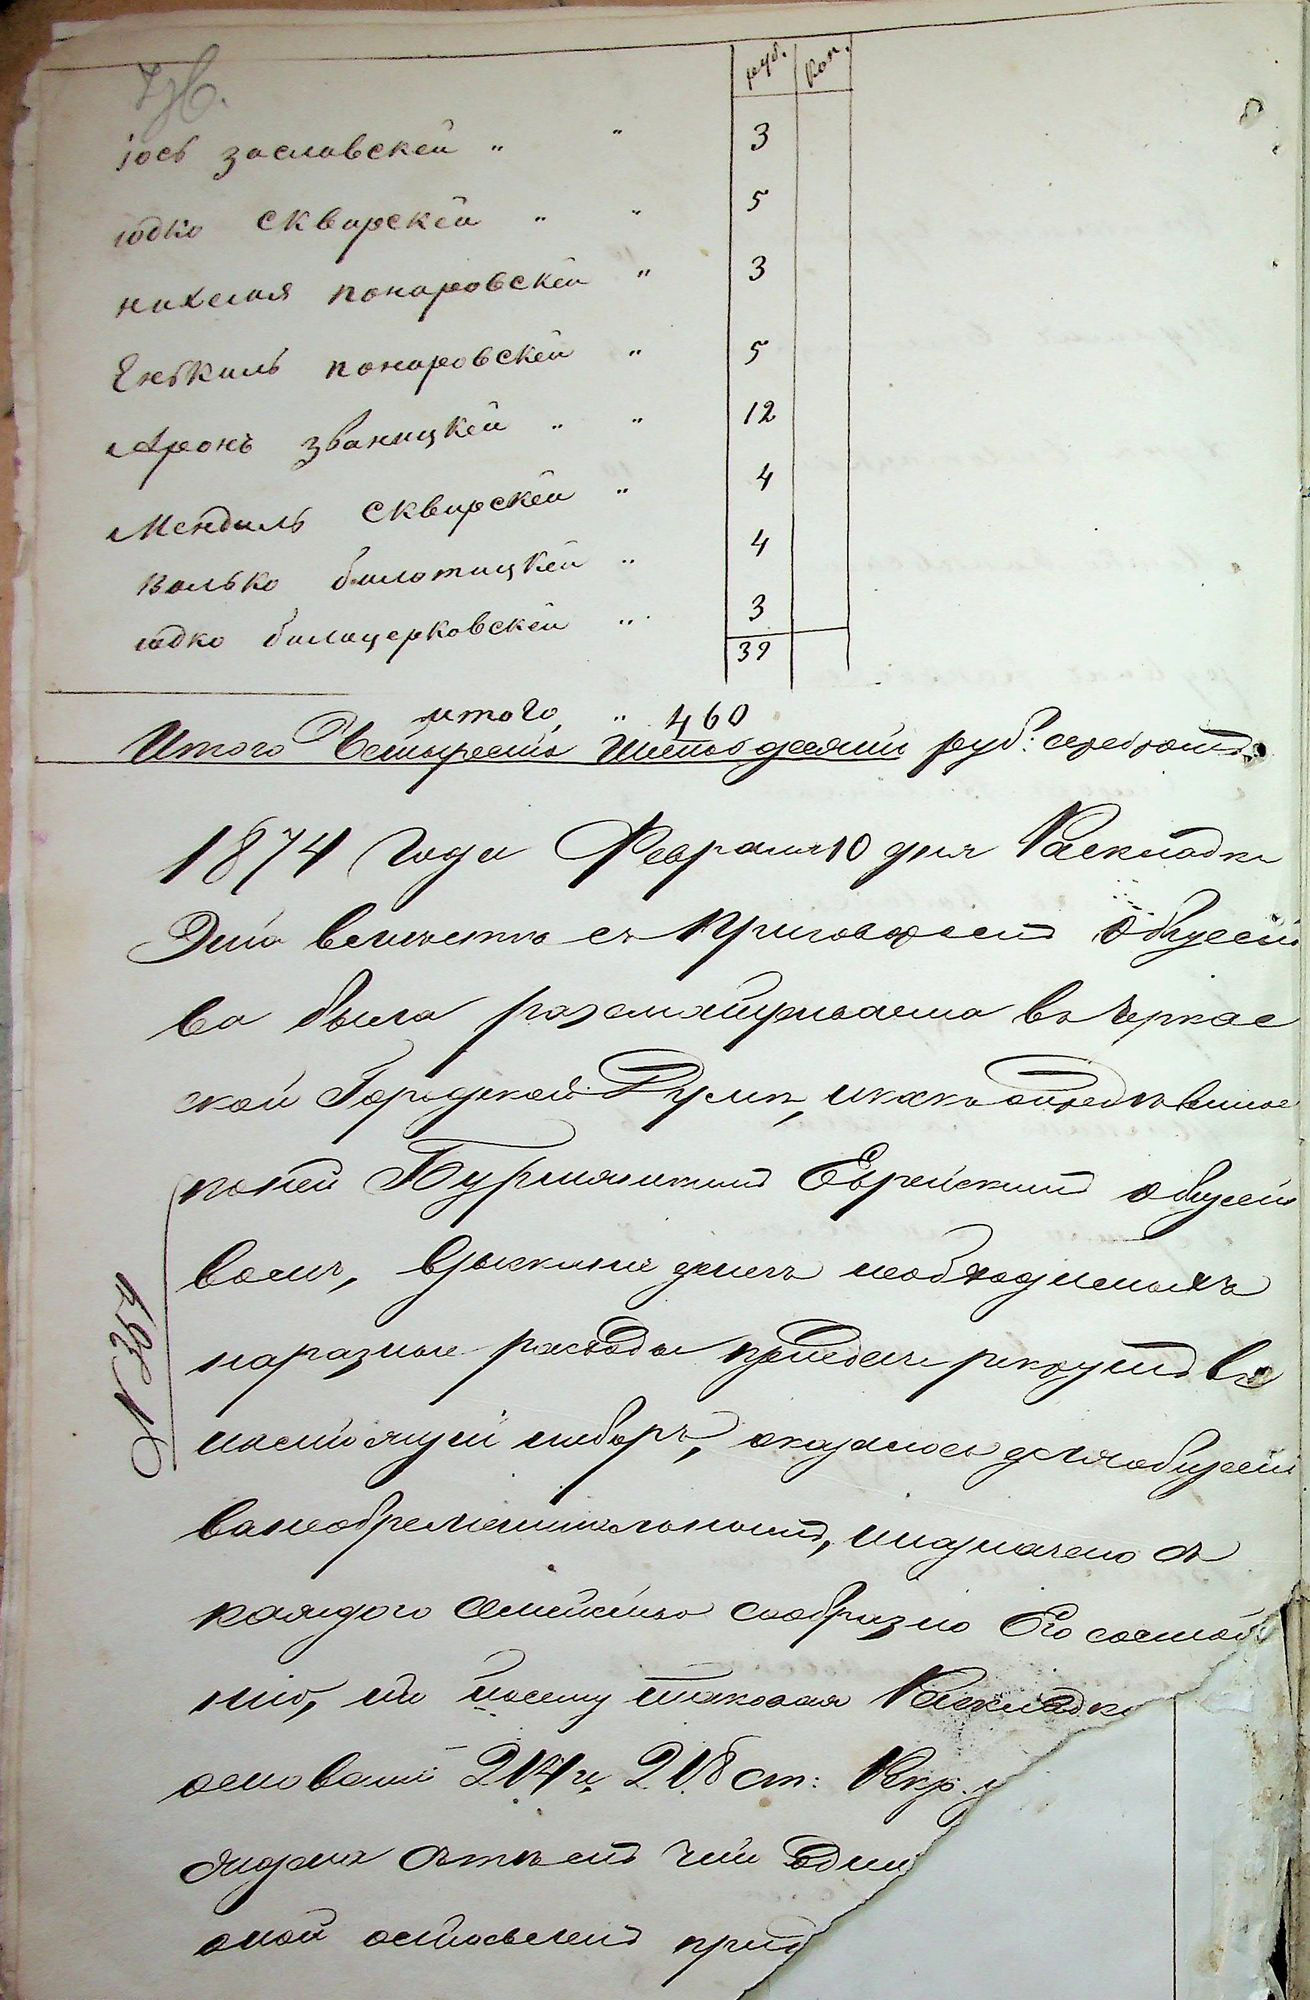 руб. коп.
іось заславскей " " 3
юдко сквирскей " " 5
нахемя понаровскей " 3
Енькиль понаровскей " 5
Аронъ званицкей " " 12
Мендиль сквирскей " 4
валько билотицкей " 4
юдко билацерковскей " 3
39
итого " 460
Итого Четыреста шестьдесятъ руб: серебромъ
1874 года Февраля 10 дня Раскладка
Эта вместе съ приговоромъ общест
ва была разсматриваема въ Черкас
ской Городской Думѣ, и какъ определенное
по ней Еврейскимъ общест
вомъ, взыскание денегъ необходимыхъ
на разные расходы при здаче рекрутъ въ
настоящей наборъ, оказалось для общест
ва необременительнымъ, и назначено съ
каждого семейства сообразно Его состоя
нию, то посему таковая Раскладка
основании 214 и 218 ст: Рекр. у
съ тѣмъ что бы
оной оставленъ при
№ 364